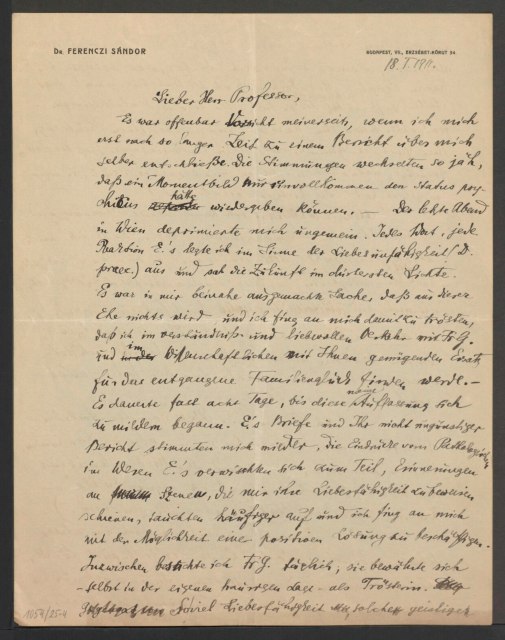 Dr. FERENCZI SÁNDOR
BUDAPEST, VII., ERZSÉBET-KÖRUT 54.
18. I. 1911.
Lieber Herr Professor,
Es war offenbar Vorsicht meinerseits, wenn ich mich
erst nach so langer Zeit zu einem Bericht über mich
selber entschließe. Die Stimmungen wechselten so jäh,
daß ein Momentbild nur unvollkommen den Status psy-
chicus hätte wiedergeben können. — Der letzte Abend
in Wien deprimierte mich ungemein. Jedes Wort, jede
Reaktion E.'s legte ich im Sinne der Liebesunfähigkeit (D.
praec.) aus und sah die Zukunft im düstersten Lichte.
Es war in mir beinahe ausgemachte Sache, daß aus dieser
Ehe nichts wird und ich fing an mich damit zu trösten,
daß ich im verständniß- und liebevollen Verkehr mit Fr. G.
und im wissenschaftlichen mit Ihnen genügenden Ersatz
für das entgangene Familienglück finden werde. —
Es dauerte fast acht Tage, bis diese meine Auffassung sich
zu mildern begann. E.'s Briefe und Ihr nicht ungünstiger
Bericht stimmten mich milder, die Eindrücke vom Pathologischen
im Wesen E.'s verwischten sich zum Teil, Erinnerungen
an Szenen, die mir ihre Liebesfähigkeit zu beweisen
schienen, tauchten häufiger auf und ich fing an mich
mit der Möglichkeit einer positiven Lösung zu beschäftigen.
Inzwischen besuchte ich Fr. G. täglich; die bewährte sich
– selbst in der eigenen traurigen Lage – als Trösterin.
Soviel Liebesfähigkeit solcher geistiger
1054/25-4